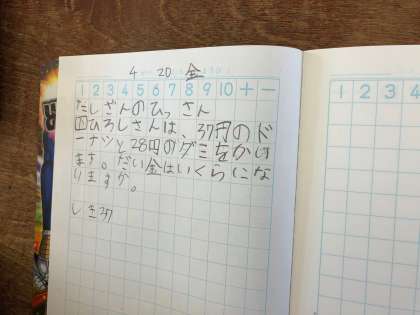 4 20 金
1 2 3 4 5 6 7 8 9 10 + −
たしざんのひっさん
四ひろしさんは、37円のド
ーナツと28円のグミをかい
ます。だい金はいくらにな
りますか。
しき37
1 2 3 4